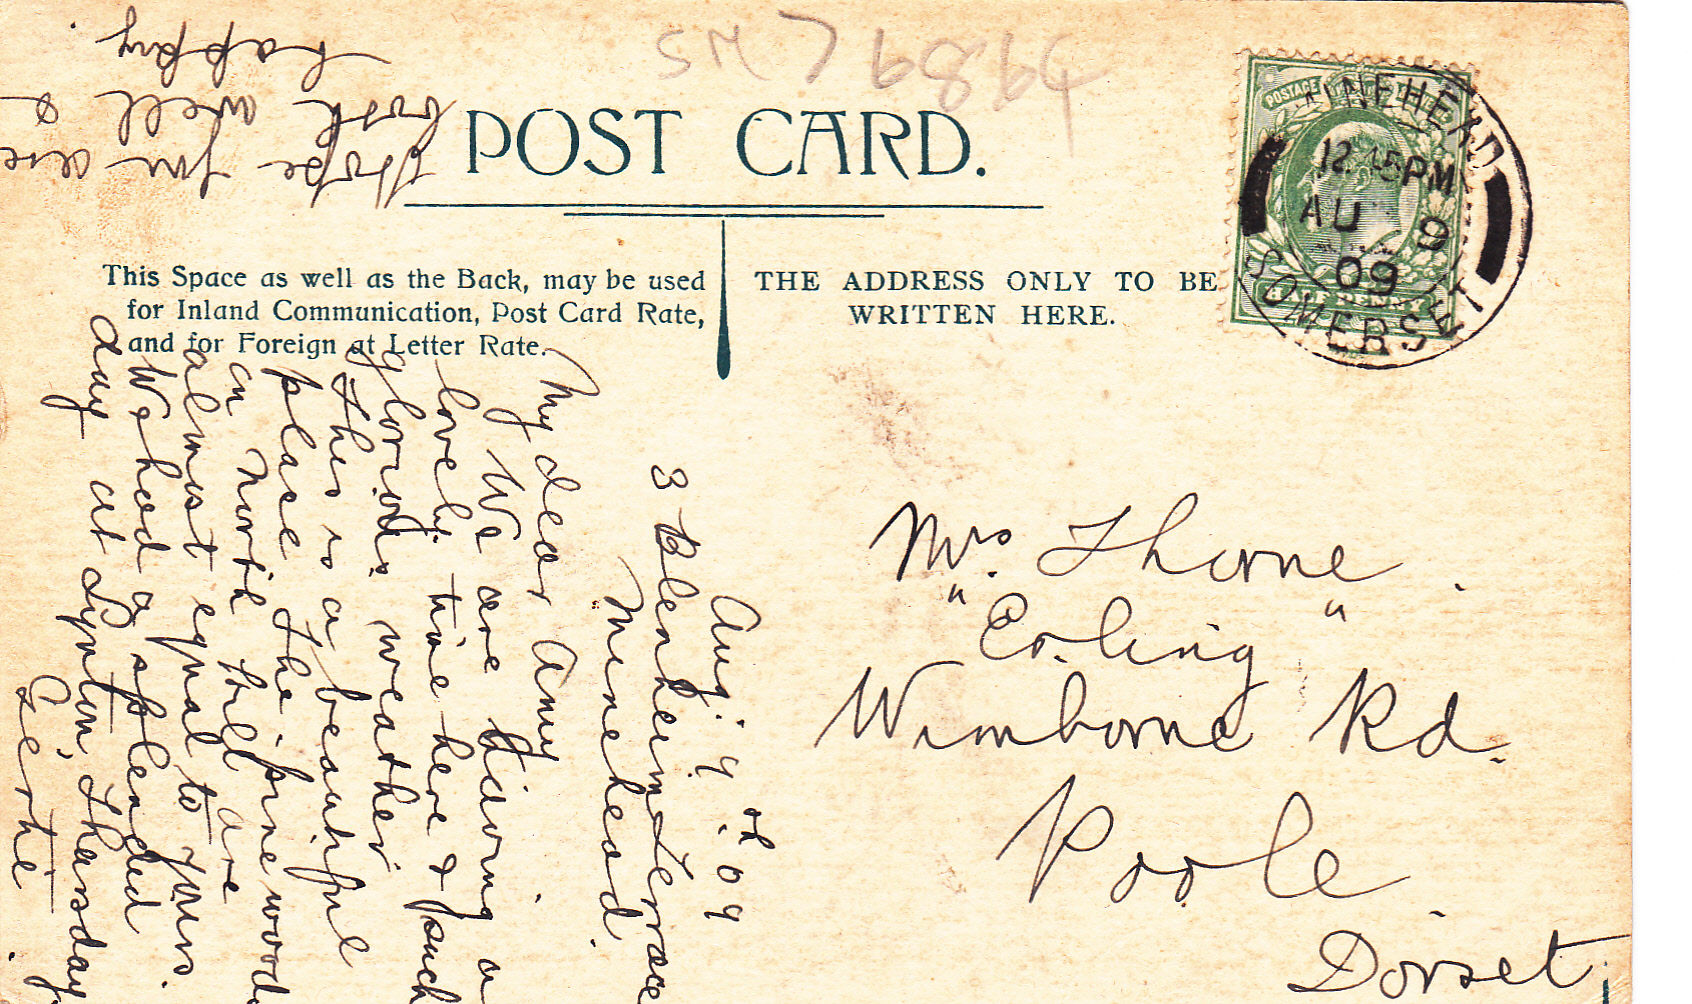 POST CARD.
This Space as well as the Back, may be used
for Inland Communication, Post Card Rate,
and for Foreign at Letter Rate.
THE ADDRESS ONLY TO BE
WRITTEN HERE.
POSTAGE
HALF PENNY
MINEHEAD
12.45PM
AU 9
09
SOMERSET
Mrs. Thorne.
"Er.ling"
Wimborne Rd.
Poole.
Dorset.
Aug. 9th. 09
3 Blenheim Terrace
Minehead.
My dear Amy
We are having a
lovely time here & such
glorious weather
this is a beautiful
place the pine woods
on North hill are
almost equal to yours.
We had a splended
day at Lynton Thursday.
Gertie
Hope you are
both well &
happy.